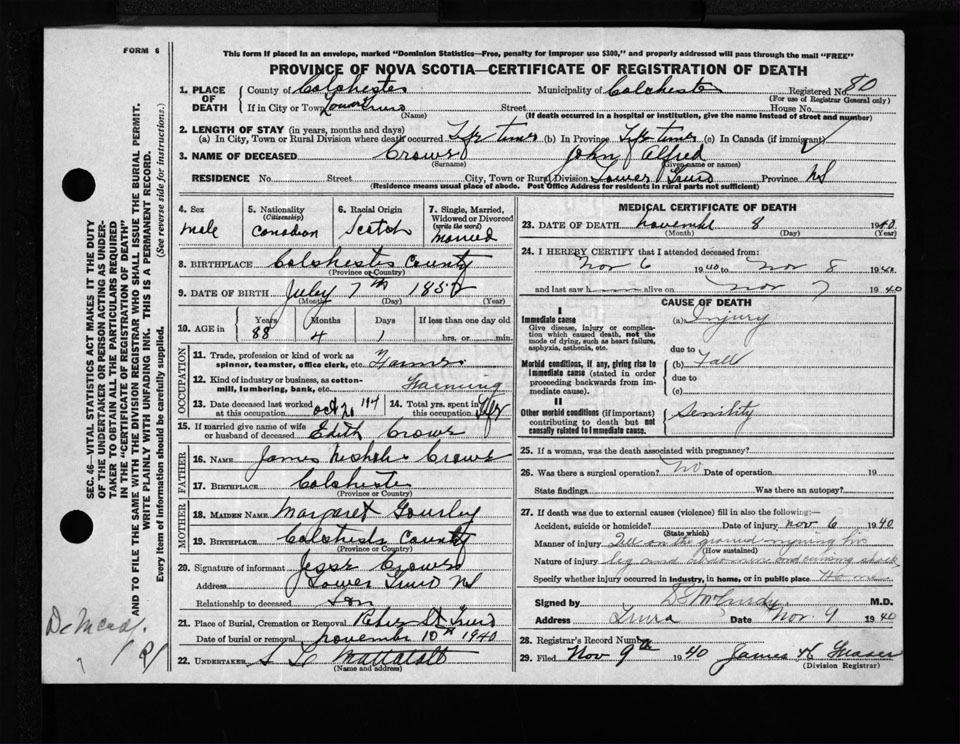 FORM 6
This form if placed in an envelope, marked "Dominion Statistics—Free, penalty for improper use $300," and properly addressed will pass through the mail "FREE"
PROVINCE OF NOVA SCOTIA—CERTIFICATE OF REGISTRATION OF DEATH
1. PLACE OF DEATH
County of Colchester Municipality of Colchester Registered No. 80
(For use of Registrar General only)
If in City or Town Lower Truro Street House No.
(Name) (If death occurred in a hospital or institution, give the name instead of street and number)
2. LENGTH OF STAY (in years, months and days)
(a) In City, Town or Rural Division where death occurred Life time (b) In Province Life time (c) In Canada (if immigrant)
3. NAME OF DECEASED Crowe John Alfred
(Surname) (Given name or names)
RESIDENCE No. Street City, Town or Rural Division Lower Truro Province NS
(Residence means usual place of abode. Post Office Address for residents in rural parts not sufficient)
4. Sex
Male
5. Nationality
(Citizenship)
Canadian
6. Racial Origin
Scotch
7. Single, Married, Widowed or Divorced
(write the word)
Married
8. BIRTHPLACE Colchester County
(Province or Country)
9. DATE OF BIRTH July 7th 1852
(Month) (Day) (Year)
10. AGE in Years Months Days If less than one day old
88 4 1 hrs. or min.
OCCUPATION
11. Trade, profession or kind of work as spinner, teamster, office clerk, etc. Farmer
12. Kind of industry or business, as cotton-mill, lumbering, bank, etc. Farming
13. Date deceased last worked at this occupation Oct 20 194
14. Total yrs. spent in this occupation Life
15. If married give name of wife or husband of deceased Edith Crowe
FATHER
16. NAME James Crowe
17. BIRTHPLACE Colchester
(Province or Country)
MOTHER
18. MAIDEN NAME Margaret Gourley
19. BIRTHPLACE Colchester County
(Province or Country)
20. Signature of informant Jesse Crowe
Address Lower Truro NS
Relationship to deceased Son
21. Place of Burial, Cremation or Removal Robie St Truro
Date of burial or removal November 10th 1940
22. UNDERTAKER
(Name and address)
MEDICAL CERTIFICATE OF DEATH
23. DATE OF DEATH November 8 1940
(Month) (Day) (Year)
24. I HEREBY CERTIFY that I attended deceased from:
Nov 6 1940 to Nov 8 1940
and last saw h alive on Nov 7 1940
CAUSE OF DEATH
Immediate cause
Give disease, injury or complication which caused death, not the mode of dying, such as heart failure, asphyxia, asthenia, etc.
(a) Injury
due to
Morbid conditions, if any, giving rise to immediate cause (stated in order proceeding backwards from immediate cause).
(b) Fall
due to
(c)
Other morbid conditions (if important) contributing to death but not causally related to immediate cause.
Senility
25. If a woman, was the death associated with pregnancy?
26. Was there a surgical operation? No Date of operation 19
State findings Was there an autopsy?
27. If death was due to external causes (violence) fill in also the following:—
Accident, suicide or homicide? Date of injury Nov 6 1940
(State which)
Manner of injury Fell on the ground injuring his
(How sustained)
Nature of injury leg and abdomen shock
Specify whether injury occurred in industry, in home, or in public place Home
Signed by M.D.
Address Truro Date Nov 9 1940
28. Registrar's Record Number
29. Filed Nov 9th 1940 James
(Division Registrar)
SEC. 46—VITAL STATISTICS ACT MAKES IT THE DUTY
OF THE UNDERTAKER OR PERSON ACTING AS UNDER-
TAKER TO OBTAIN ALL THE PARTICULARS REQUIRED
IN THE "CERTIFICATE OF REGISTRATION OF DEATH"
AND TO FILE THE SAME WITH THE DIVISION REGISTRAR WHO SHALL ISSUE THE BURIAL PERMIT.
WRITE PLAINLY WITH UNFADING INK. THIS IS A PERMANENT RECORD.
Every item of information should be carefully supplied. (See reverse side for instructions.)